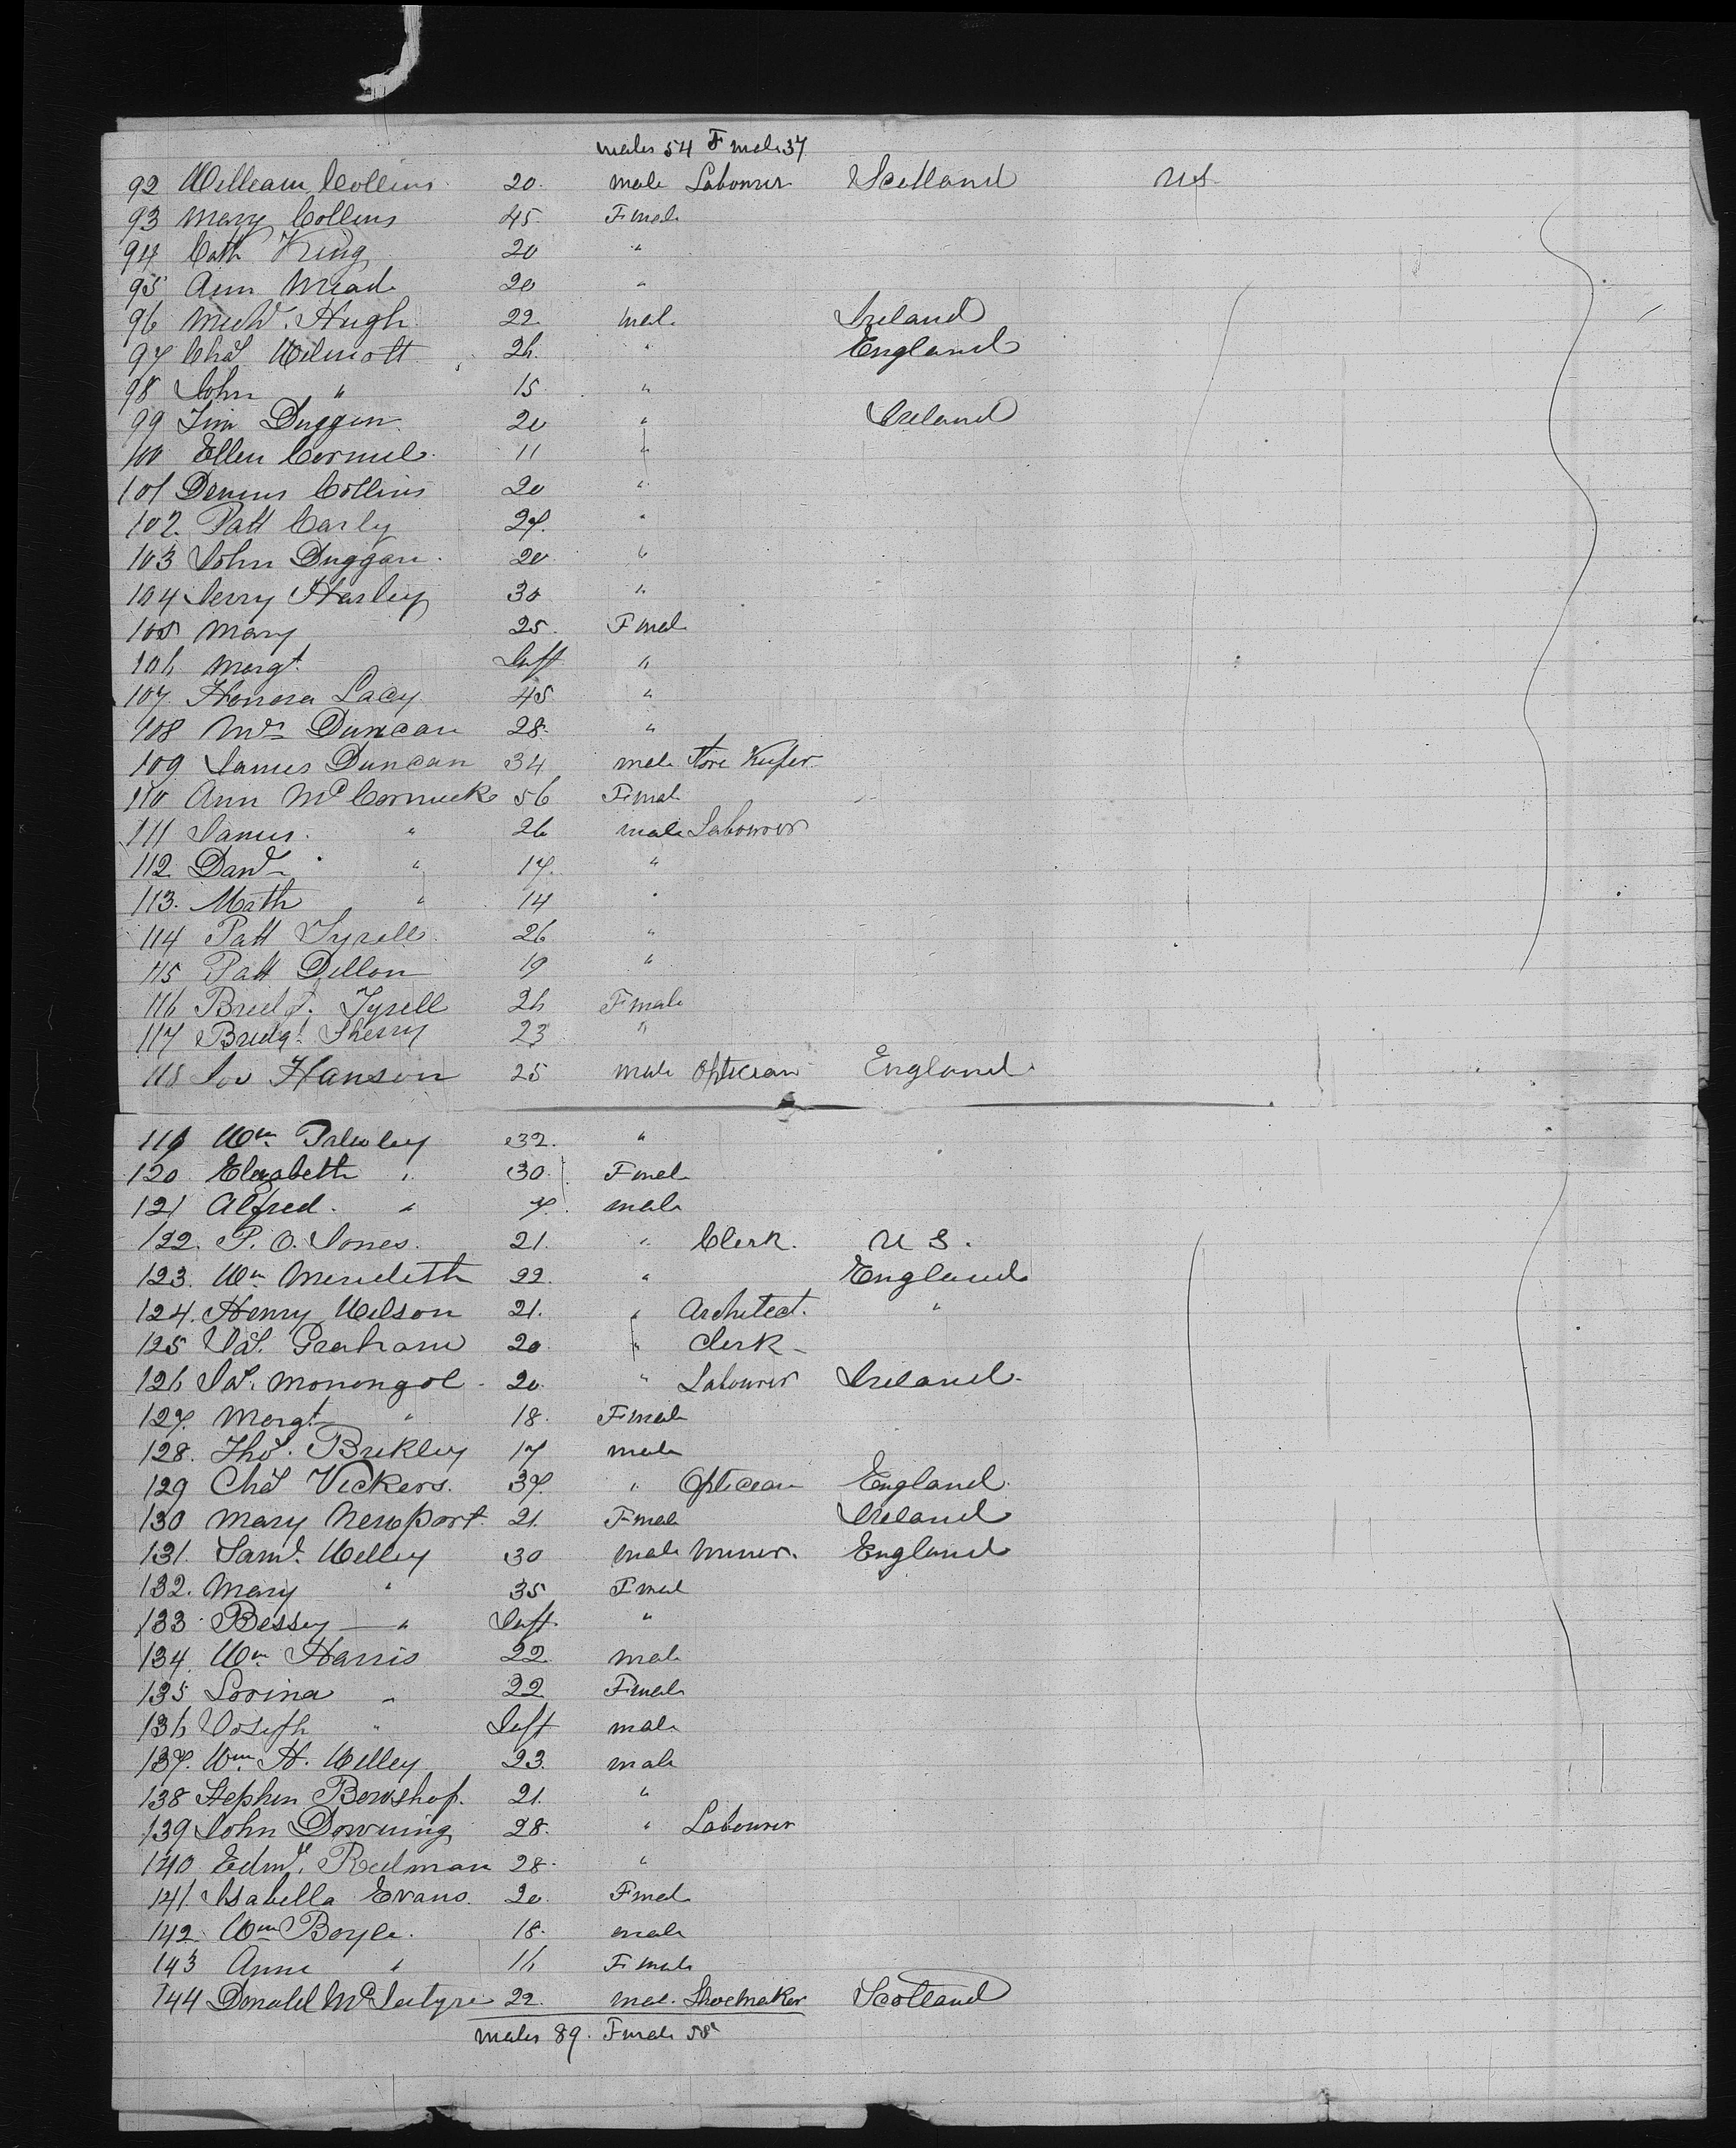 males 54 Fmale 37
92 William Collins 20 male Labourer Scotland US
93 Mary Collins 45 Fmal
94 Cath King 20 "
95 Ann Mead 20 "
96 Hugh 22 mal. Ireland
97 Chas Wilmott 26 " England
98 John " 15 "
99 Tim Duggan 20 " Ireland
100 Ellen 11 "
101 Dennis Collins 20 "
102 Patt Carly 27 "
103 John Duggan 20 "
104 Jerry Harley 30 "
105 Mary 25 Fmal
106 Margt Inft "
107 Honora Lacy 45 "
108 Mrs Duncan 28 "
109 James Duncan 34 male Store Keeper
110 Ann McCormick 56 Fmal
111 James " 26 male Labourer
112 Davd " 17 "
113 Math " 14 "
114 Patt Tyrell 26 "
115 Patt Dillon 19 "
116 Bridgt Tyrell 26 Fmale
117 Bridgt Sherry 23 "
118 Jos Hanson 25 male Optician England
119 Wm 32 "
120 Elizabeth " 30 Fmal
121 Alfred " 7 male
122 P. O. Jones 21 " Clerk U S.
123 Wm Meredith 22 " England
124 Henry Wilson 21 " Architect "
125 Jas. Graham 20 " Clerk
126 Jas. Monongol 20 " Labourer Ireland
127 Margt " 18 Fmale
128 Thos. Brikley 17 male
129 Chas Vickers 37 " Optician England
130 Mary Newport 21 Fmale Ireland
131 Saml. Welley 30 male Miner England
132 Mary " 35 Fmal
133 Bessey " Inft "
134 Wm Harris 22 mal
135 Lovina " 22 Fmale
136 Joseph " Inft male
137 Wm H. Welley 23 male
138 Stephen 21 "
139 John Downing 28 " Labourer
140 Edmd. Redman 28 "
141 Isabella Evans 20 Fmal
142 Wm Boyle 18 male
143 Anne " 16 Fmale
144 Donald McIntyre 22 mal. Shoemaker Scotland
males 89. Fmale 58